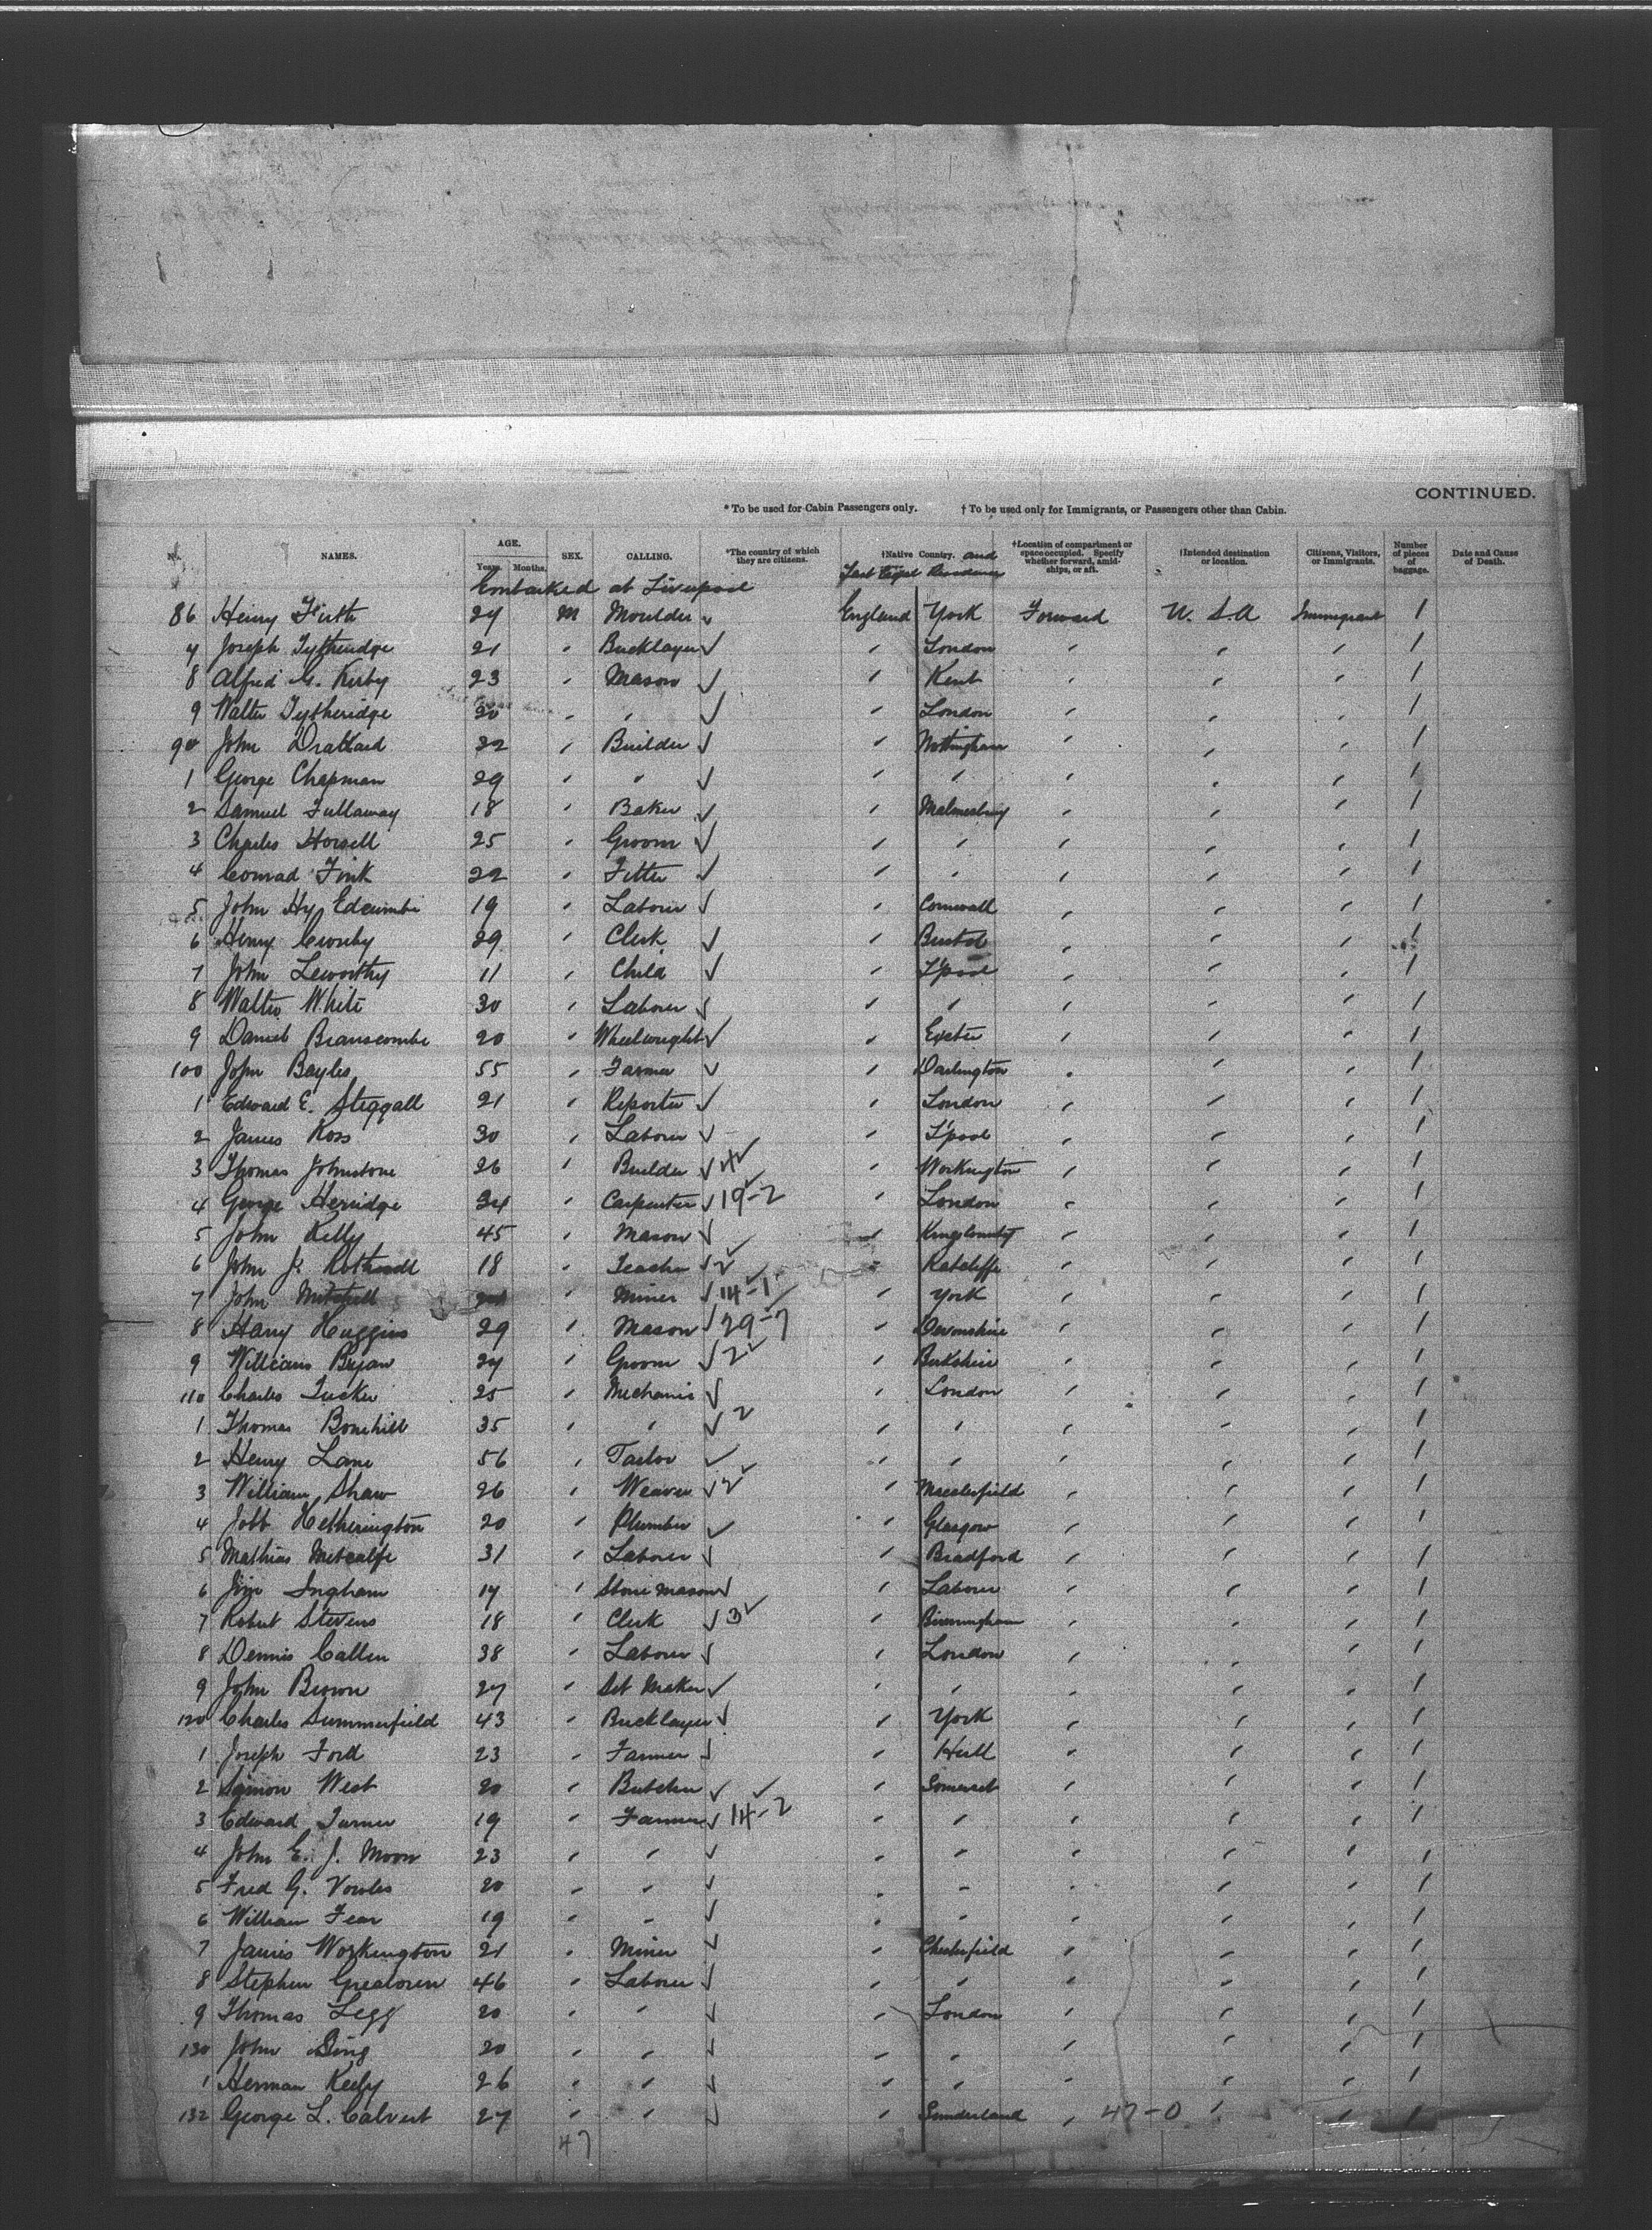 CONTINUED.
* To be used for Cabin Passengers only. † To be used only for Immigrants, or Passengers other than Cabin.
No. NAMES. AGE. Years. Months. SEX. CALLING. *The country of which they are citizens. †Native Country. and Last Residence †Location of compartment or space occupied. Specify whether forward, amidships, or aft. †Intended destination or location. Citizens, Visitors, or Immigrants. Number of pieces of baggage. Date and Cause of Death.
Embarked at Liverpool
86 Henry Firth 24 M Moulder England York Forward U. S. A Immigrant 1
7 Joseph Tytheridge 21 " Bricklayer ✓ " London " " " 1
8 Alfred G. Kirby 23 " Mason ✓ " Kent " " " 1
9 Walter Tytheridge 20 " " ✓ " London " " " 1
90 John Drakard 32 " Builder ✓ " Nottingham " " " 1
1 George Chapman 29 " " ✓ " " " " " 1
2 Samuel Fullaway 18 " Baker ✓ " Malmesbury " " " 1
3 Charles Horsell 25 " Groom ✓ " " " " " 1
4 Conrad Fink 22 " Fitter ✓ " " " " " 1
5 John Hy Edcumbe 19 " Laborer ✓ " Cornwall " " " 1
6 Henry Crosby 29 " Clerk ✓ " Bristol " " " 1
7 John Leworthy 11 " Child ✓ " L'pool " " " 1
8 Walter White 30 " Laborer ✓ " " " " " 1
9 Daniel Branscombe 20 " Wheelwright ✓ " Exeter " " " 1
100 John Bayles 55 " Farmer ✓ " Darlington " " " 1
1 Edward E. Steggall 21 " Reporter ✓ " London " " " 1
2 James Ross 30 " Laborer ✓ " L'pool " " " 1
3 Thomas Johnstone 26 " Builder ✓ 4 ✓ " Workington " " " 1
4 George Herridge 34 " Carpenter ✓ 19-2 " London " " " 1
5 John Kelly 45 " Mason ✓ " Kings County " " " 1
6 John J. 18 " Teacher ✓ 2 ✓ " Ratcliffe " " " 1
7 John Mitchell " Miner ✓ 14-1 ✓ " York " " " 1
8 Harry Huggins 29 " Mason ✓ 29-7 " Devonshire " " " 1
9 William Bryan 24 " Groom ✓ 2 ✓ " Berkshire " " " 1
110 Charles Tucker 25 " Mechanic ✓ " London " " " 1
1 Thomas Bonehill 35 " " ✓ 2 " " " " " 1
2 Henry Lane 56 " Tailor ✓ " " " " " 1
3 William Shaw 26 " Weaver ✓ 2 ✓ " Macclesfield " " " 1
4 Jobb Hetherington 20 " Plumber ✓ " Glasgow " " " 1
5 Mathias Metcalfe 31 " Laborer ✓ " Bradford " " " 1
6 Jim Ingham 17 " Stone Mason ✓ " Laborer " " " 1
7 Robert Stevens 18 " Clerk ✓ 3 ✓ " Birmingham " " " 1
8 Dennis Callen 38 " Laborer ✓ " London " " " 1
9 John Brown 27 " Set Maker ✓ " " " " " 1
120 Charles Summerfield 43 " Bricklayer ✓ " York " " " 1
1 Joseph Ford 23 " Farmer ✓ " Hull " " " 1
2 Simon West 20 " Butcher ✓ ✓ " Somerset " " " 1
3 Edward Turner 19 " Farmer ✓ 14-2 " " " " " 1
4 John E. J. Moon 23 " " ✓ " " " " " 1
5 Fred G. Vowles 20 " " ✓ " " " " " 1
6 William Fear 19 " " ✓ " " " " " 1
7 James Workington 21 " Miner ✓ " Chesterfield " " " 1
8 Stephen Grealoren 46 " Laborer ✓ " " " " " 1
9 Thomas Legg 20 " " ✓ " London " " " 1
130 John 20 " " ✓ " " " " " 1
1 Herman Keely 26 " " ✓ " " " " " 1
132 George L. Calvert 27 " " ✓ " Sunderland " 47-0 " " 1
47